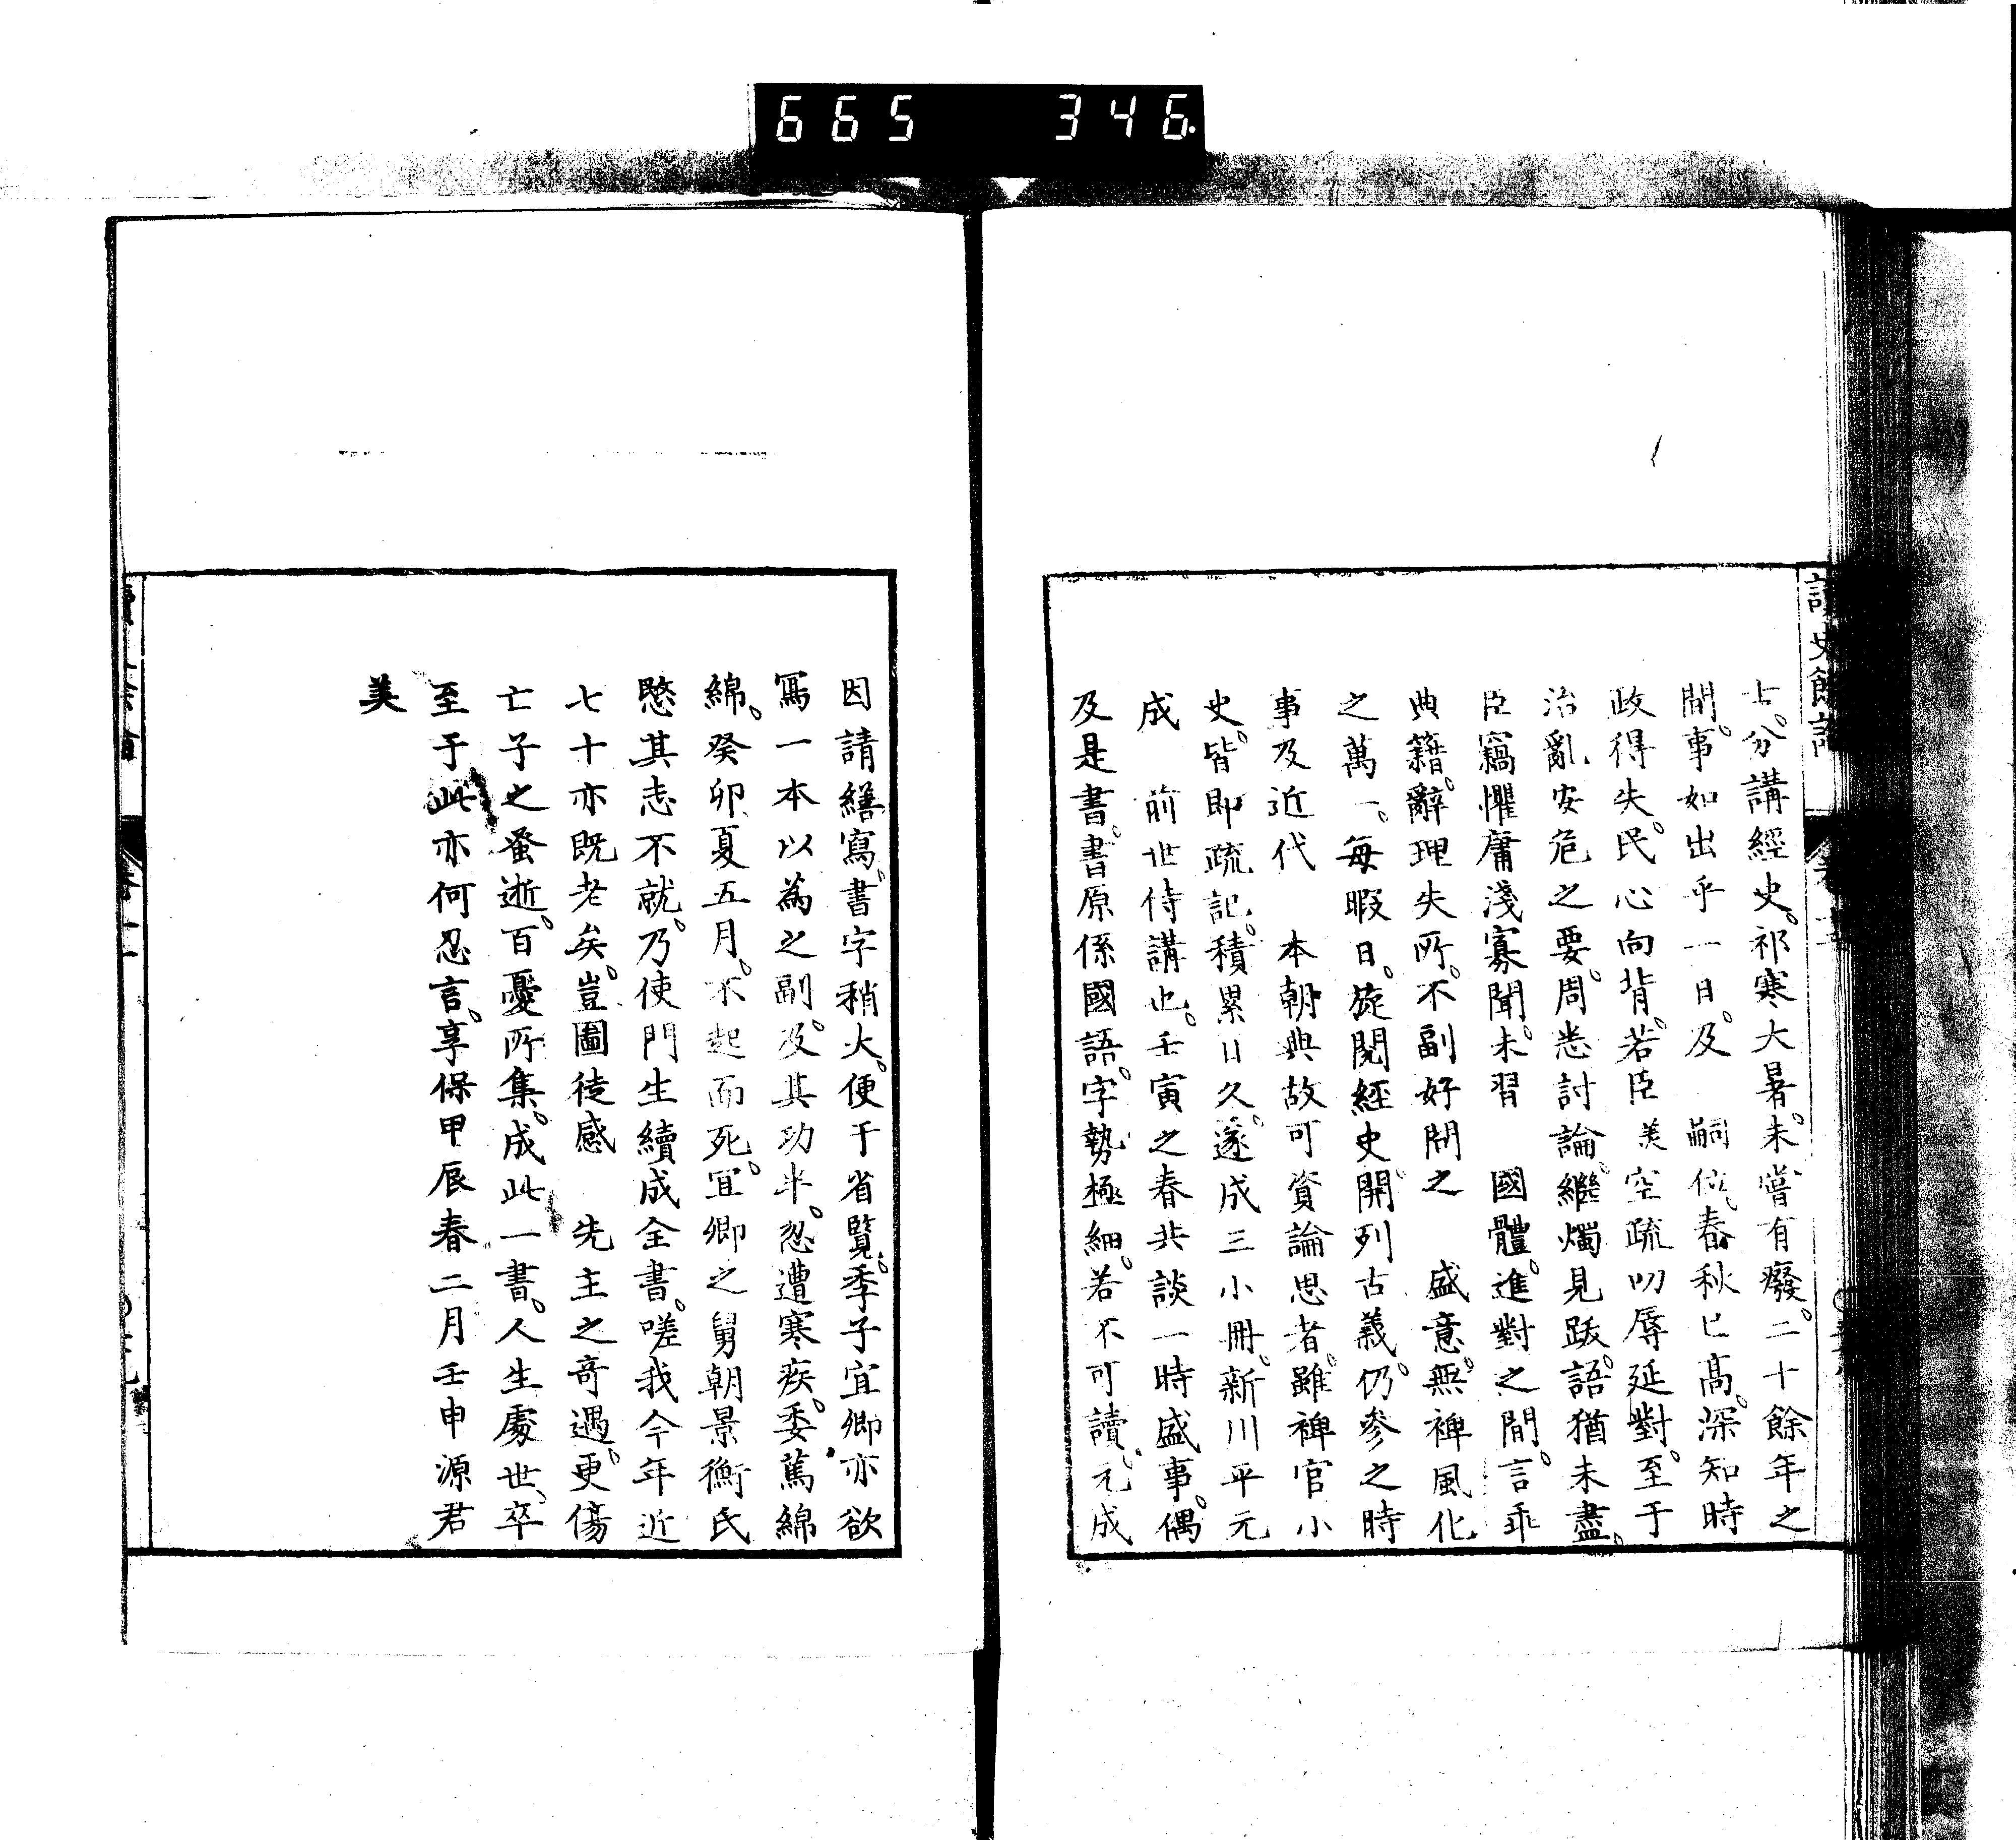 665 346
讀史餘論
士。分講經史。祁寒大暑。未嘗有癈。二十餘年之
間。事如出乎一日。及 嗣位。春秋已髙。深知時
政得失。民心向背。若臣美空疏叨辱延對。至于
治亂安危之要。周悉討論。繼燭見跋。語猶未盡。
臣竊懼庸淺寡聞。未習 國體。進對之間。言乖
典籍。辭理失所。不副好問之 盛意。無裨風化
之萬一。每暇日。旋閱經史。開列古義。仍參之時
事及近代 本朝典故可資論思者。雖稗官小
史。皆即疏記。積累日久。遂成三小冊。新川平元
成 前世侍講也。壬寅之春共談一時盛事。偶
及是書。書原係國語。字勢極細。若不可讀。元成
因請繕寫。書字稍大。便于省覽。季子宜卿亦欲
冩一本以為之副。及其功半。忽遭寒疾。委蔫綿
綿。癸卯夏五月。不起而死。宜卿之舅朝景衡氏
愍其志不就。乃使門生續成全書。嗟我今年近
七十亦既老矣。豈圖徒感 先主之奇遇。更傷
亡子之蚤逝。百憂所集。成此一書。人生處世。卒
至于此亦何忍言。享保甲辰春二月壬申源君
美